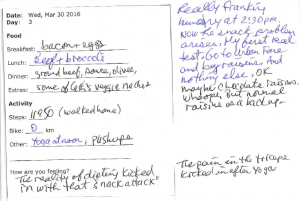 Date: Wed, Mar 30 2016
Day: 3
Food
Breakfast: bacon + eggs
Lunch: Beef + broccoli
Dinner: ground beef, sauce, olives,
Extras: some of Cath's veggie nachos
Activity
Steps: 11950 (walked home)
Bike: 0 km
Other: Yoga at noon, pushups
How are you feeling?
The reality of dieting kicked
in with that "snack attack"
Really frankin
hungry at 2:30pm.
Now the snack problem
arises. My first real
test. Go to Urban Fare
and buy raisins. And
nothing else. OK
maybe chocolate raisins.
Whoops. But normal
raisins as a backup.
The pain in the triceps
kicked in after yoga